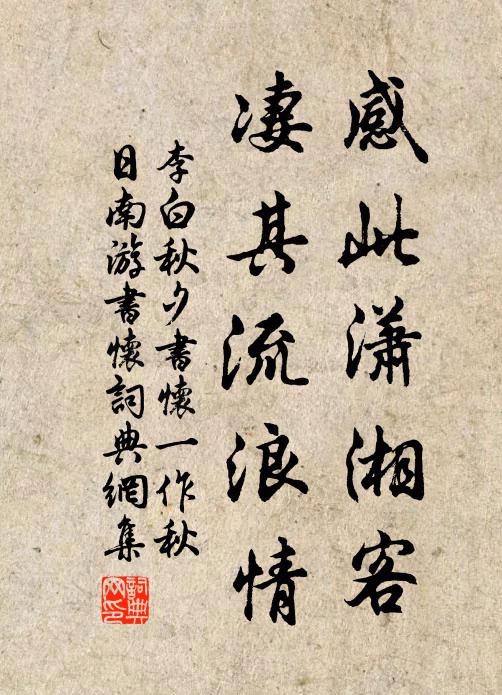 感此瀟湘客
凄其流浪情
李白秋夕書懷一作秋
日南游書懷詞典網集
詞典
网印